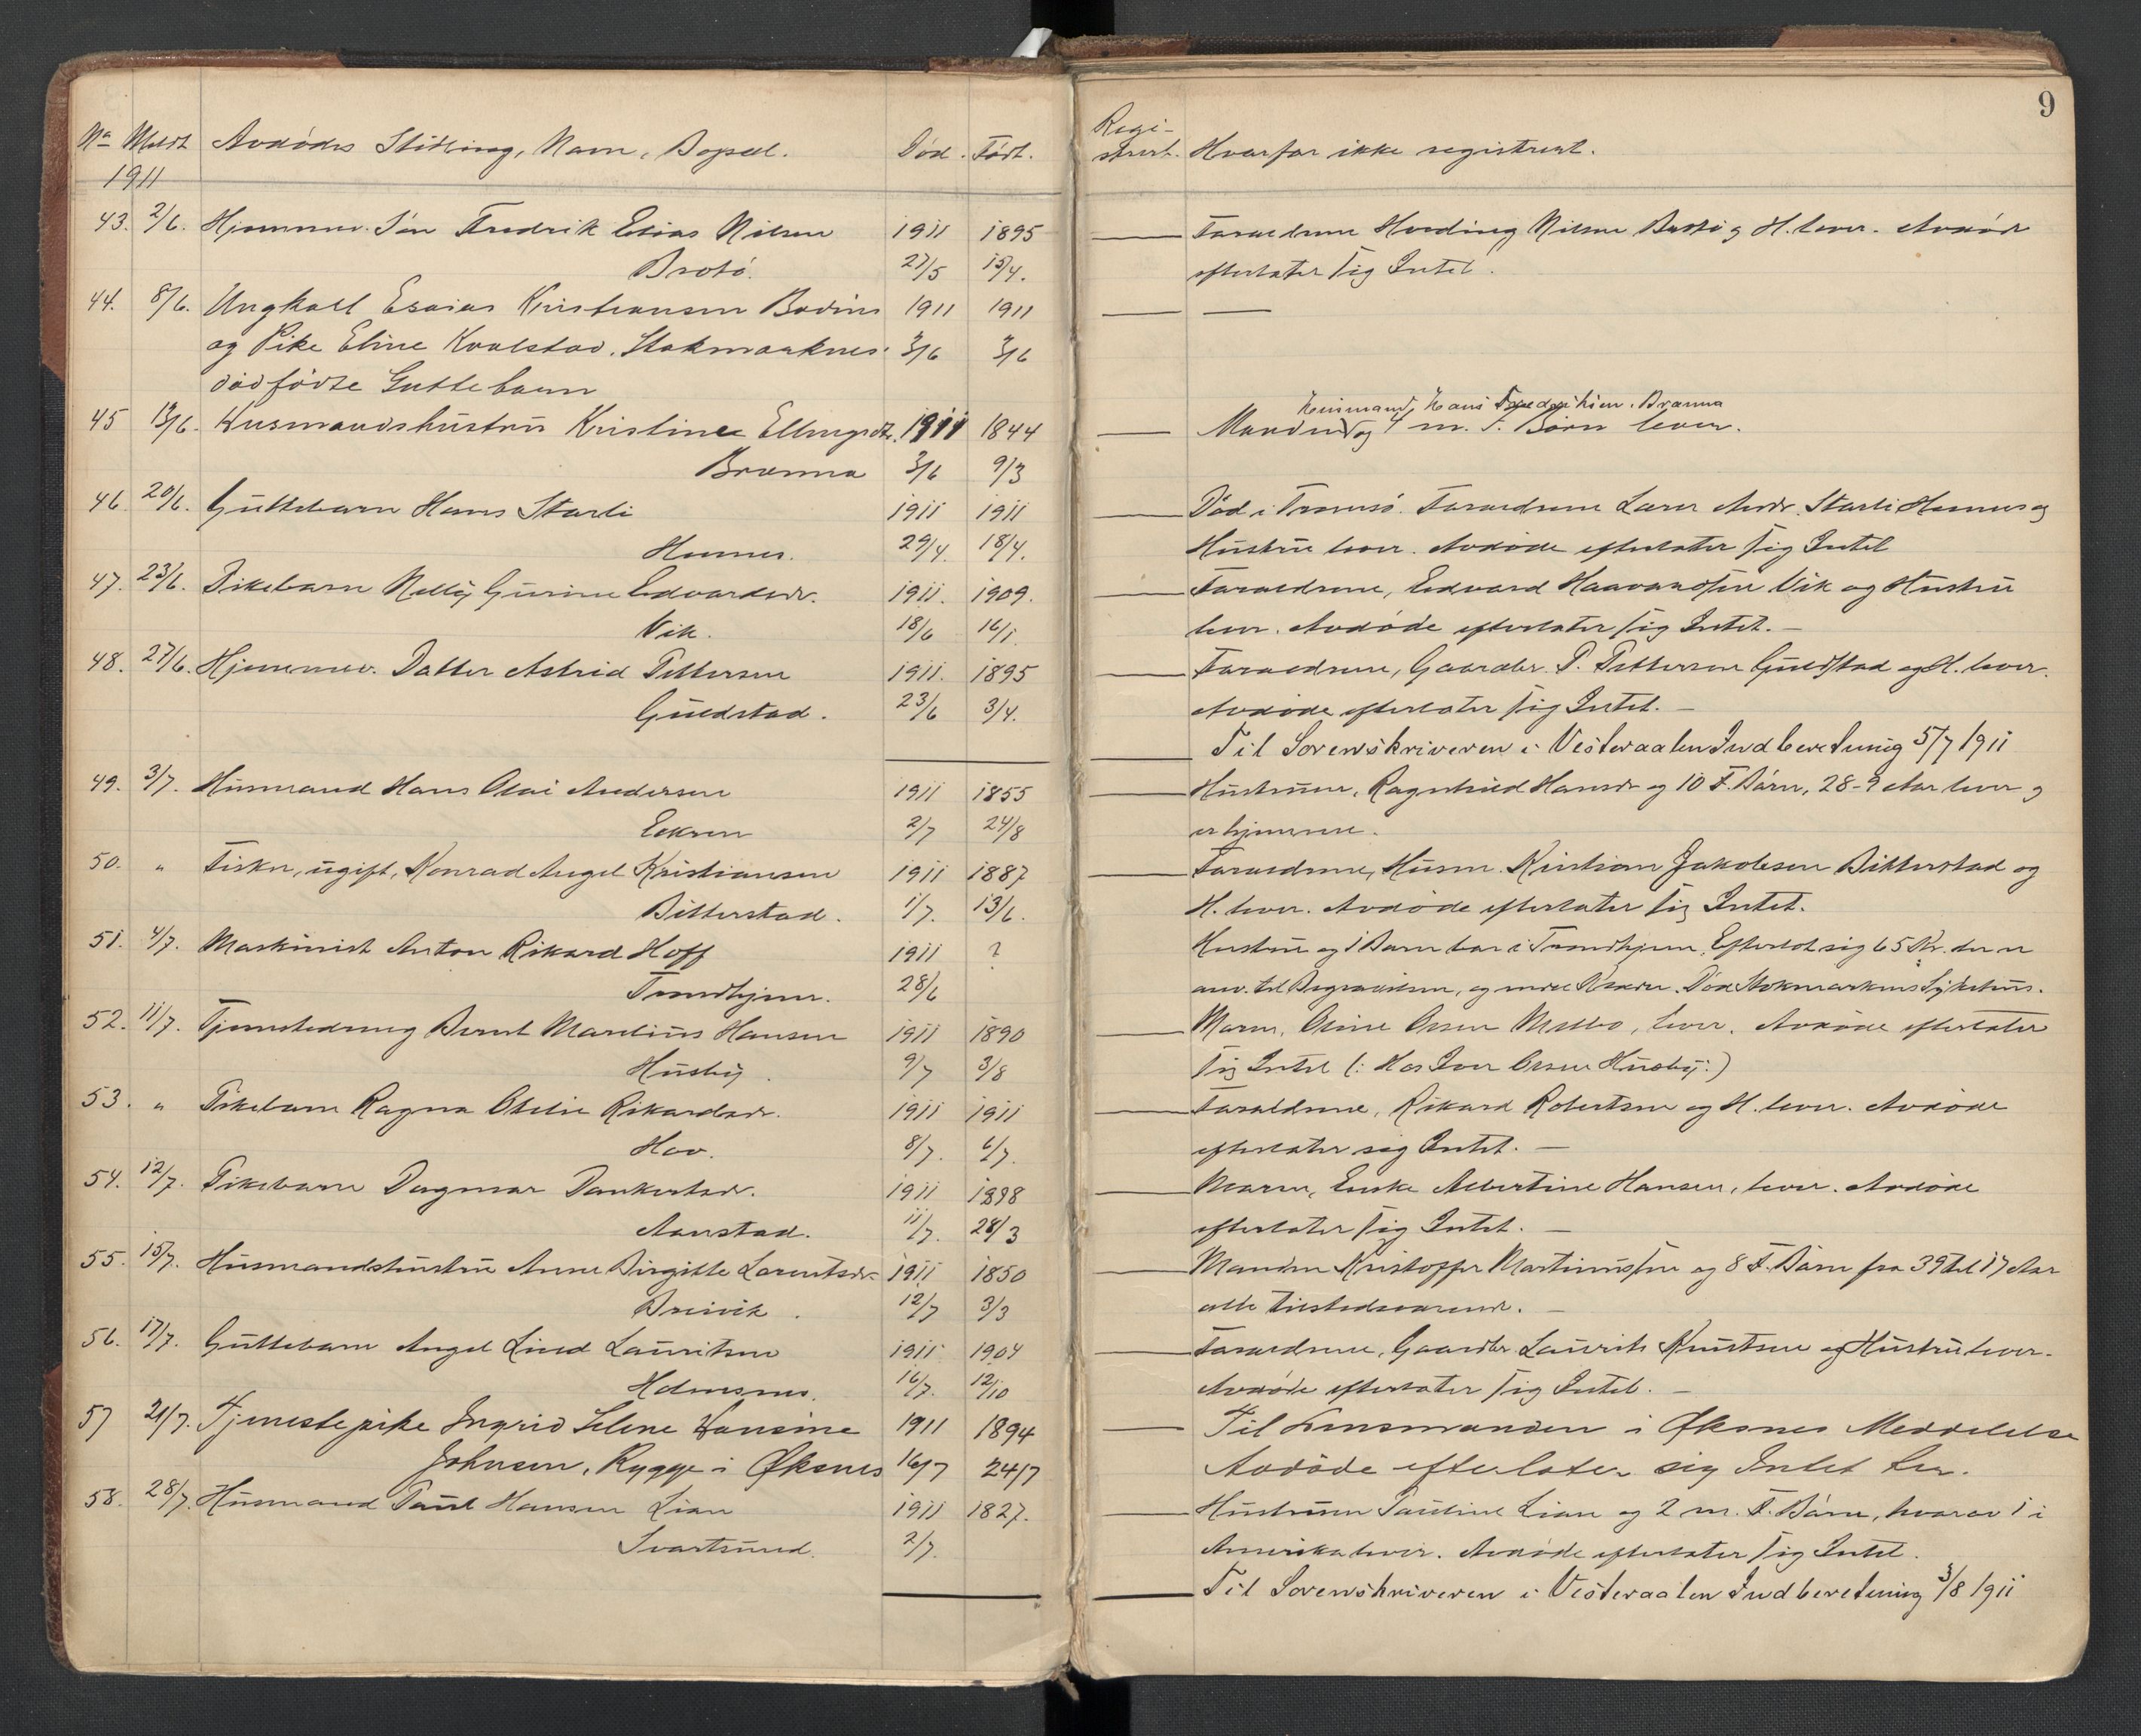 9
No Meldt Avdödes Stilling, Navn, Bopæl. Död. Födt.
Regi-
strert. Hvorfor ikke registrert.
1911
43. 2/6. Hjemmev. Sön Fredrik Esias Nilsen 1911 1895
Forældrene Nilsen og H. lever. Avdöde
Brotö. 27/5 15/4.
efterlater sig Intet.
44. 8/6. Ungkall Esaias Kristiansen Bodins 1911 1911
og Pike Eline Kvalstad, Stokmarknes 3/6 3/6
dödfödte Guttebarn
45 13/6. Husmandshustru Kristine Ellingsdtr. 1911 1844
Husmand, Hans Fredriksen. Brænna
Manden og 4 m. F. Börn lever.
Brænna 3/6 9/3
46. 20/6. Guttebarn Hans Starli 1911 1911
Död i Tromsö. Forældrene Lærer Andr. Starli Hennes og
Hennes. 29/4. 18/4.
Hustru lever. Avdöde efterlater sig Intet
47. 23/6. Pikebarn Nelly Gurine Edvardsdr. 1911. 1909.
Forældrene, Edvard Haavardsen Vik og Hustru
Vik. 18/6 16/1.
lever. Avdöde efterlater sig Intet. —
48. 27/6. Hjemmev. Datter Astrid Pettersen 1911. 1895
Forældrene, Gaardbr. P. Pettersen Guldstad og H. lever.
Guldstad. 23/6 3/4.
Avdöde efterlater sig Intet. —
Til Sorenskriveren i Vesteraalen Indberetning 5/7 1911
49. 3/7. Husmand Hans Olai Andersen 1911 1855
Hustruen, Ragnhild Hansdr og 10 F. Börn, 28-9 Aar lever og
Eekren 2/7 24/8
er hjemme.
50. " Fisker, ugift, Konrad Angel Kristiansen 1911 1887
Forældrene, Husm. Kristian Jakobsen Bitterstad og
Bitterstad. 1/7. 13/6.
H. lever. Avdöde efterlater sig Intet.
51. 4/7. Maskinist Anton Rikard Hoff 1911 ?
Hustru og 1 Barn bor i Trondhjem. Efterlot sig 65 Kr. der er
Trondhjem. 28/6
anv. til Begravelsen, og Död Stokmarknes Sykehus.
52. 11/7. Tjenstedreng Bernt Mareliús Hansen 1911 1890
Moren, Oline Olsen Melbo, lever. Avdöde efterlater
Husby. 9/7 3/8
sig Intet (: Hos Iver Olsen Husby:)
53. " Pikebarn Ragna Otelie Rikardsdr. 1911 1911
Forældrene, Rikard Robertsen og H. lever. Avdöde
Hov. 8/7. 6/7.
efterlater sig Intet. —
54. 12/7. Pikebarn Dagmar Dankertsdr. 1911 1898
Moren, Enke Albertine Hansen, lever. Avdöde
Aanstad. 11/7. 28/3
efterlater sig Intet. —
55. 15/7. Husmandshustru Anne Birgitte Lorentsdr 1911 1850
Manden Kristoffer Martinussen og 8 F. Börn fra 39 til 17 Aar
Breivik. 12/7 3/3
alle tilstedeværende. —
56. 17/7. Guttebarn Angel Lind Lauritsen 1911 1904
Forældrene, Gaardbr. Laurits Knutsen og Hustru lever.
Holmsnes. 16/7. 12/10
Avdöde efterlater sig Intet. —
57 21/7. Tjenestepike Ingrid Selene Hansine 1911 1894
Til Lensmanden i Øksnes Meddelelse
Johnsen, Rygge i Øksnes 16/7 24/7
Avdöde efterlater sig Intet her.
58. 28/7. Husmand Paul Hansen Lian 1911 1827.
Hustruen Pauline Lian og 2 m. F. Börn, hvorav 1 i
Svartsund. 2/7.
Amerika lever. Avdöde efterlater sig Intet.
Til Sorenskriveren i Vesteraalen Indberetning 3/8 1911